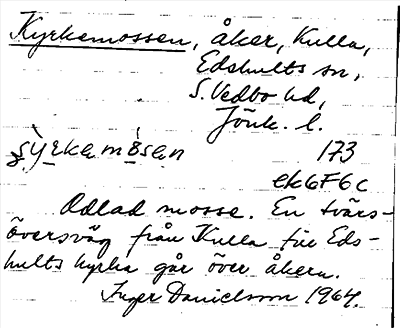 Kyrkemossen, åker, Kulla,
Edshults sn,
S. Vedbo hd,
Jönk. l.
173
ek6F6c
Odlad mosse. En tvärs-
översväg från Kulla till Eds-
hults kyrka går över åkern.
Inger Danielsson 1964.